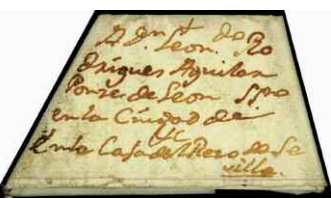 Leon. de Ro
driguez Aguilar
Ponze. de Leon
en la Ciudad de
En la Casa de el Rero de Se
villa.